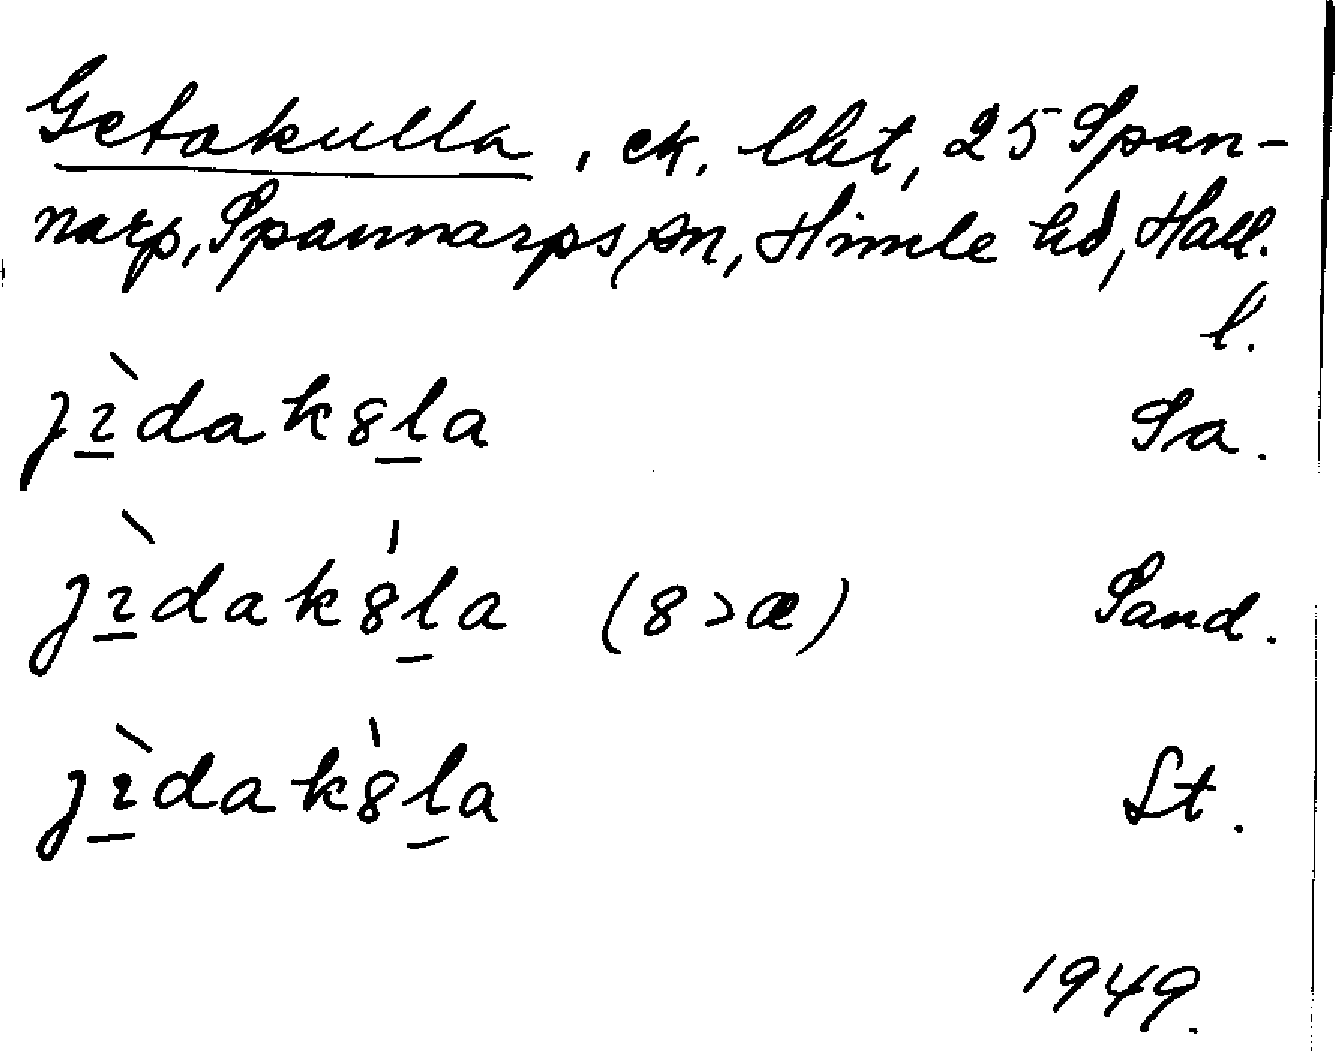 Getakulla, ek. lht, 25 Span-
narp, Spannarps sn, Himle hd, Hall.
l.
jɪ̠̀dak8l̠a Sa.
jɪ̠̀dak8́l̠a (8>œ) Sand.
jɪ̠̀dak8́l̠a St.
1949.